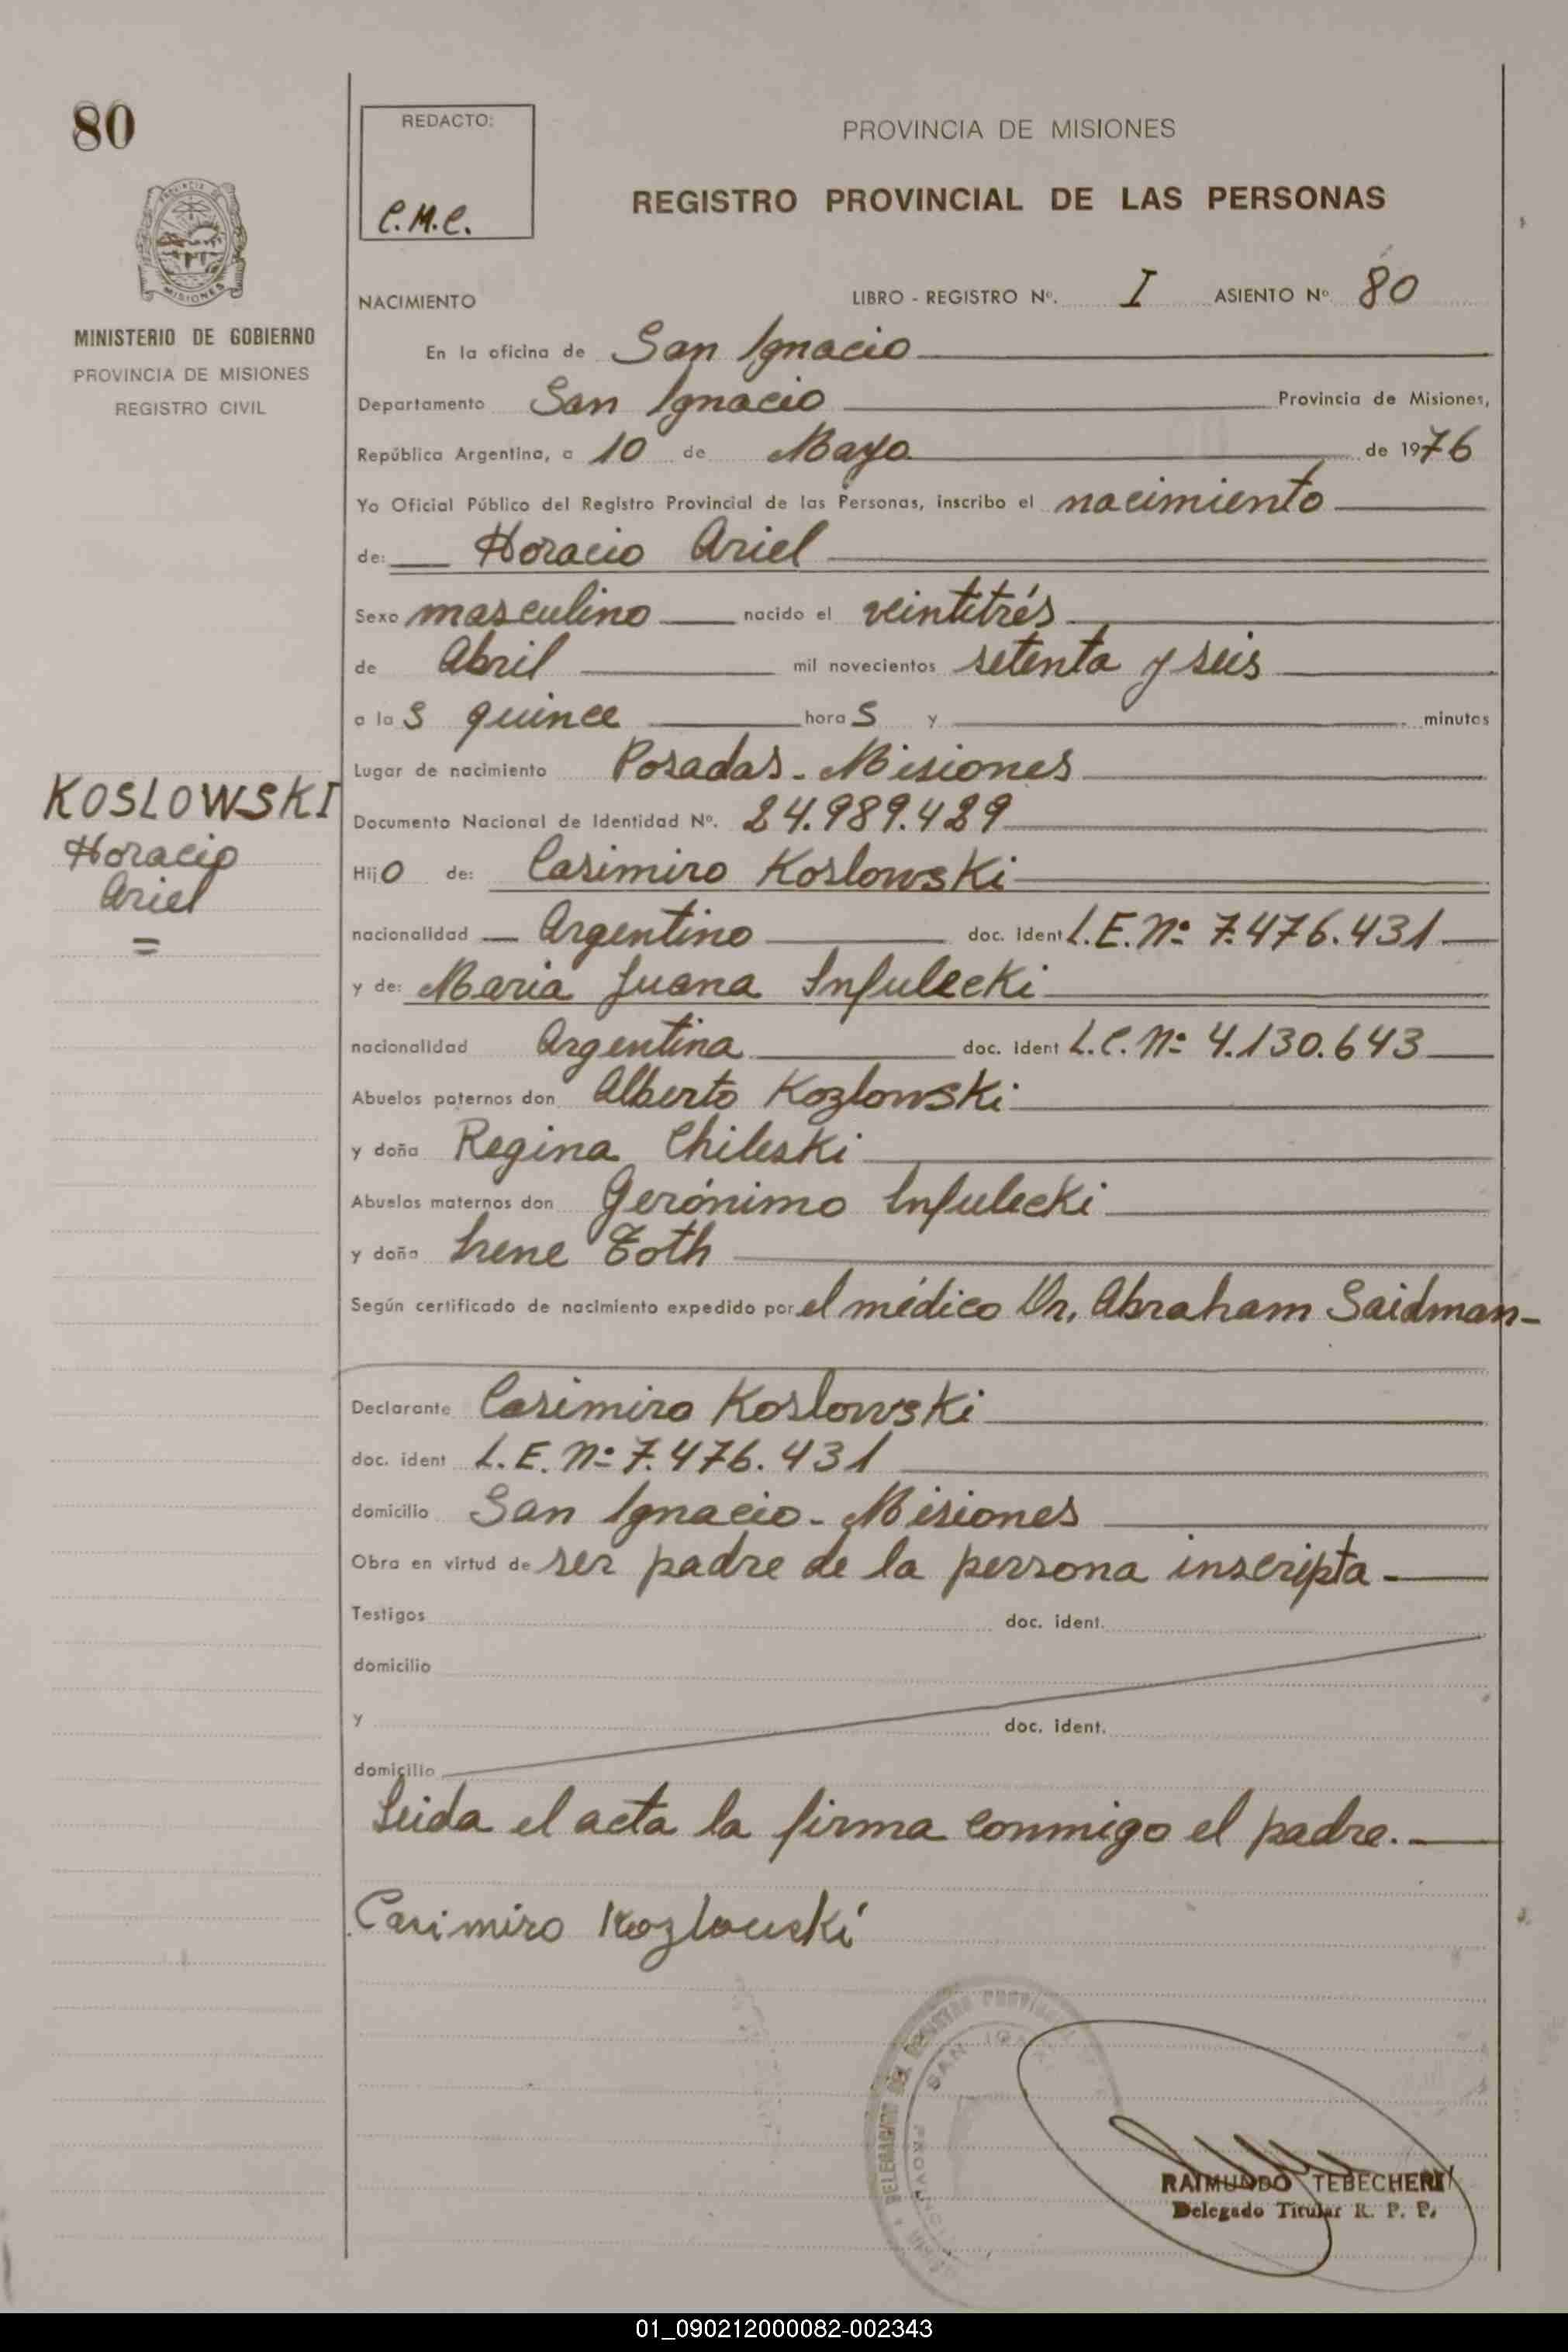 80
REDACTO:
C.M.C.
PROVINCIA DE MISIONES
REGISTRO PROVINCIAL DE LAS PERSONAS
MISIONES
MINISTERIO DE GOBIERNO
PROVINCIA DE MISIONES
REGISTRO CIVIL
NACIMIENTO LIBRO - REGISTRO Nº. I ASIENTO Nº 80
En la oficina de San Ignacio
Departamento San Ignacio Provincia de Misiones,
República Argentina, a 10 de Mayo de 1976
Yo Oficial Público del Registro Provincial de las Personas, inscribo el nacimiento
de: Horacio Ariel
Sexo masculino nacido el veintitrés
de Abril mil novecientos setenta y seis
a las quince horas y minutos
Lugar de nacimiento Posadas - Misiones
KOSLOWSKI
Horacio
Ariel
=
Documento Nacional de Identidad Nº. 24.989.429
Hijo de: Casimiro Koslowski
nacionalidad Argentino doc. ident L.E. Nº 7.476.431
y de: Maria Juana Infulecki
nacionalidad Argentina doc. ident L.C. Nº 4.130.643
Abuelos paternos don Alberto Kozlowski
y doña Regina Chileski
Abuelos maternos don Gerónimo Infulecki
y doña Irene Toth
Según certificado de nacimiento expedido por el médico Dr. Abraham Saidman-
Declarante Casimiro Koslowski
doc. ident L.E. Nº 7.476.431
domicilio San Ignacio - Misiones
Obra en virtud de ser padre de la persona inscripta -
Testigos doc. ident.
domicilio
y doc. ident.
domicilio
Leida el acta la firma conmigo el padre.-
Casimiro Kozlouski
SAN
RAIMUNDO TEBECHERI
Delegado Titular R. P. P.
01_090212000082-002343